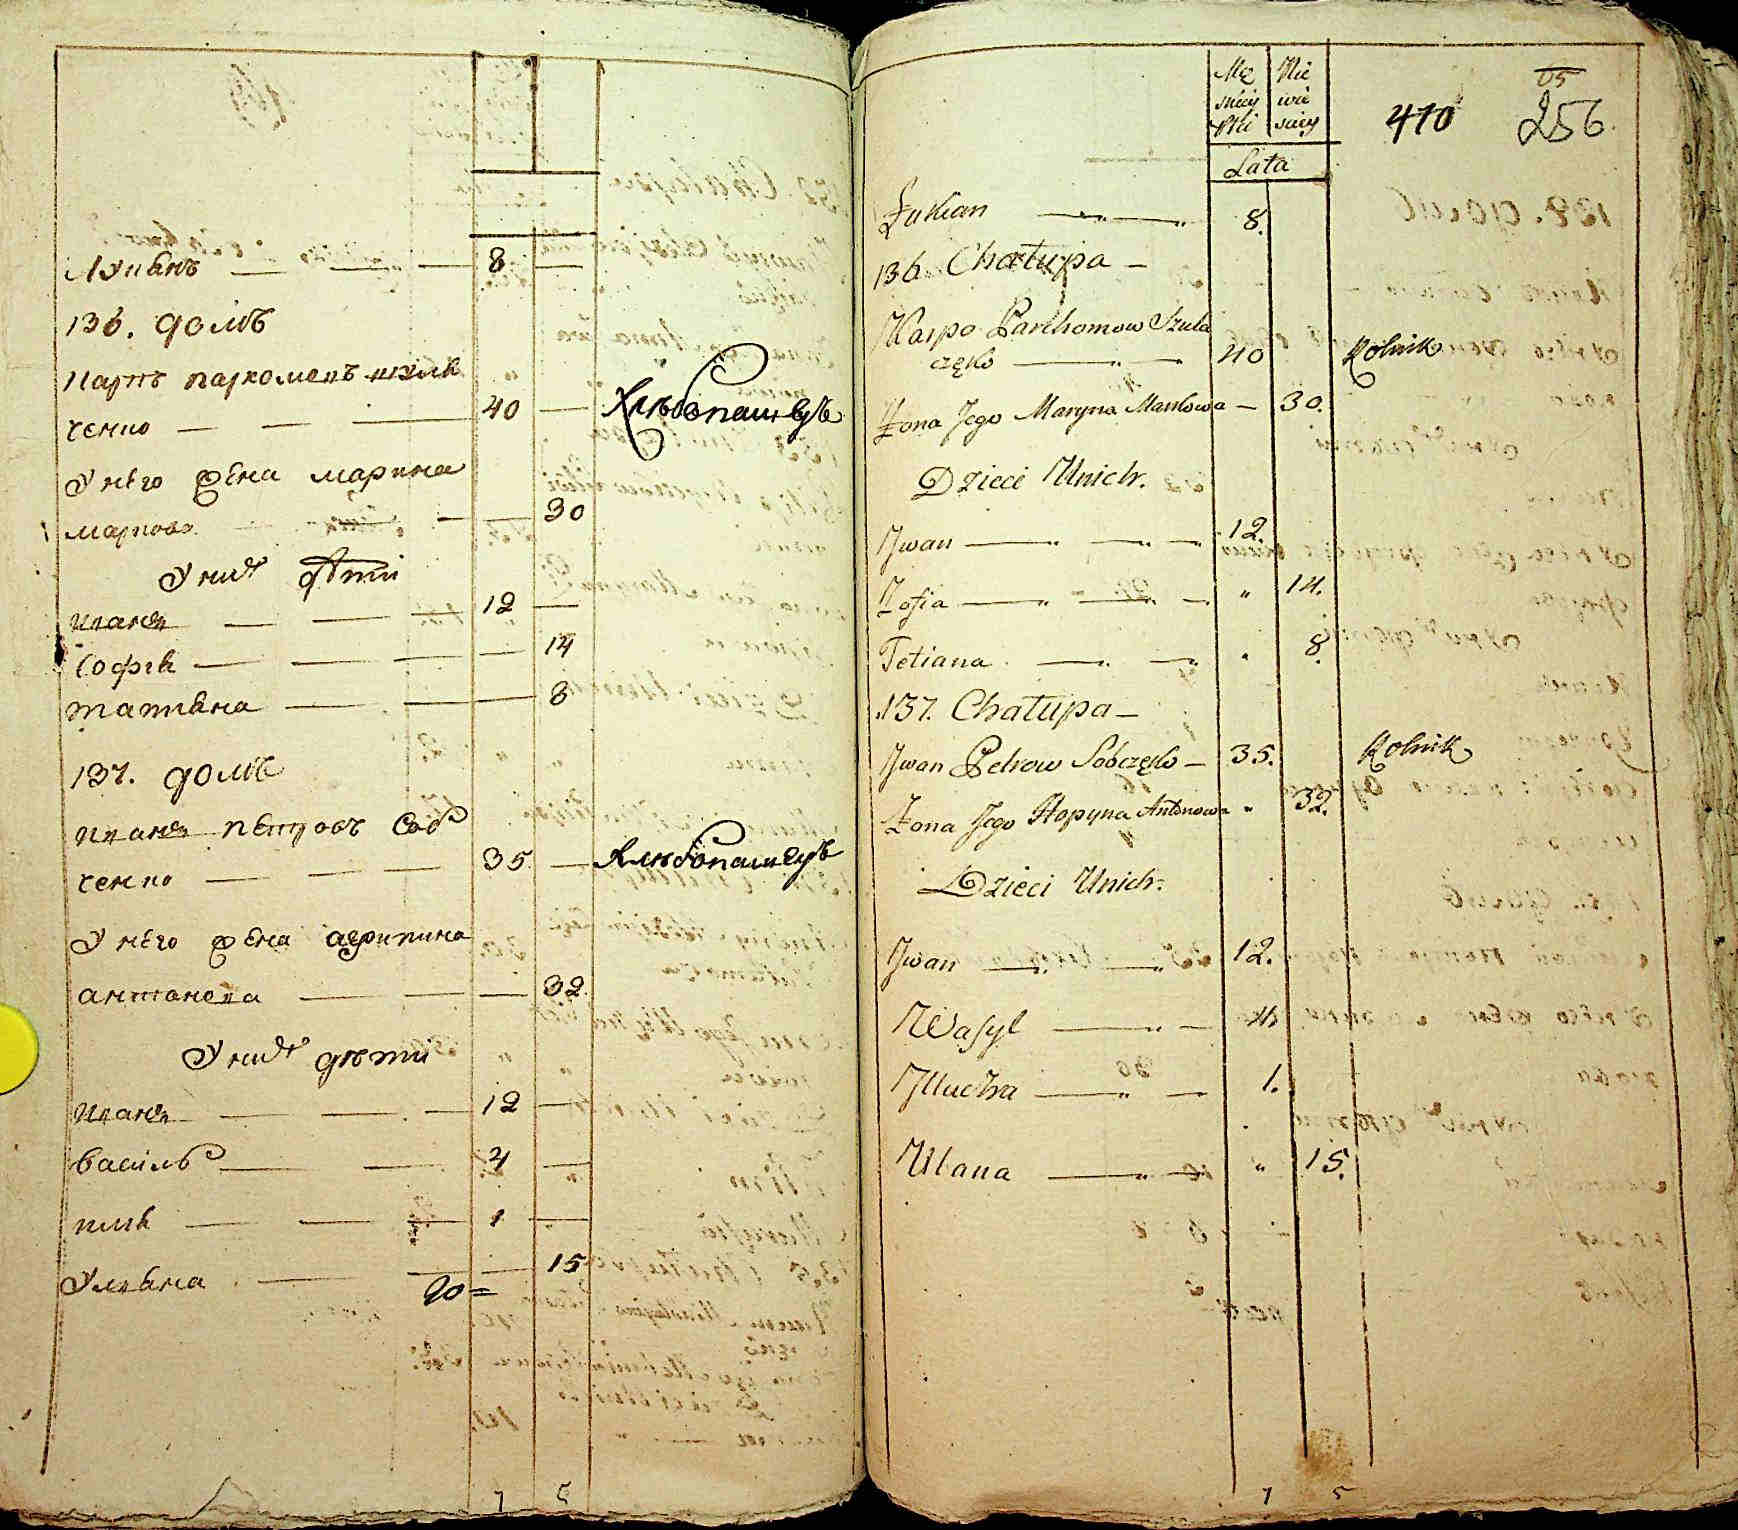 Лукіянъ — — — 8 —
136. домъ
Карпъ пархомовъ шула
ченко — — — 40 — Хлѣбопашецъ
У него жена марина
маркова — — 30
У нихъ дѣти
иванъ — — — 12 —
Софія — — — — 14
татіяна — — — 8
137. домъ
иванъ петровъ Соб
ченко — — — 35 — Хлѣбопашецъ
У него жена агрипина
антонова — — — 32
У нихъ дѣти
иванъ — — — 12 —
василь — — 4 —
илія — — — 1 —
Уліяна — — — 15
20=
7 5
Mę Nie
skiey wie
Płci sciey
Lata
410
05
256
Łukian — — 8.
136. Chałupa —
Karpo Parchomow Szula
częko — — 40 Rolnik
Żona Jego Maryna Markowa — 30.
Dzieci Unich.
Jwan — — — 12.
Zofia — — — " 14.
Tetiana — — " 8.
137. Chałupa —
Jwan Petrow Sobczęko — 35. Rolnik
Żona Jego Hopyna Antonowa " 32.
Dzieci Unich.
Jwan — — 12.
Wasyl — — 4.
Illuchra — — 1.
Ulana — — " 15.
7 5